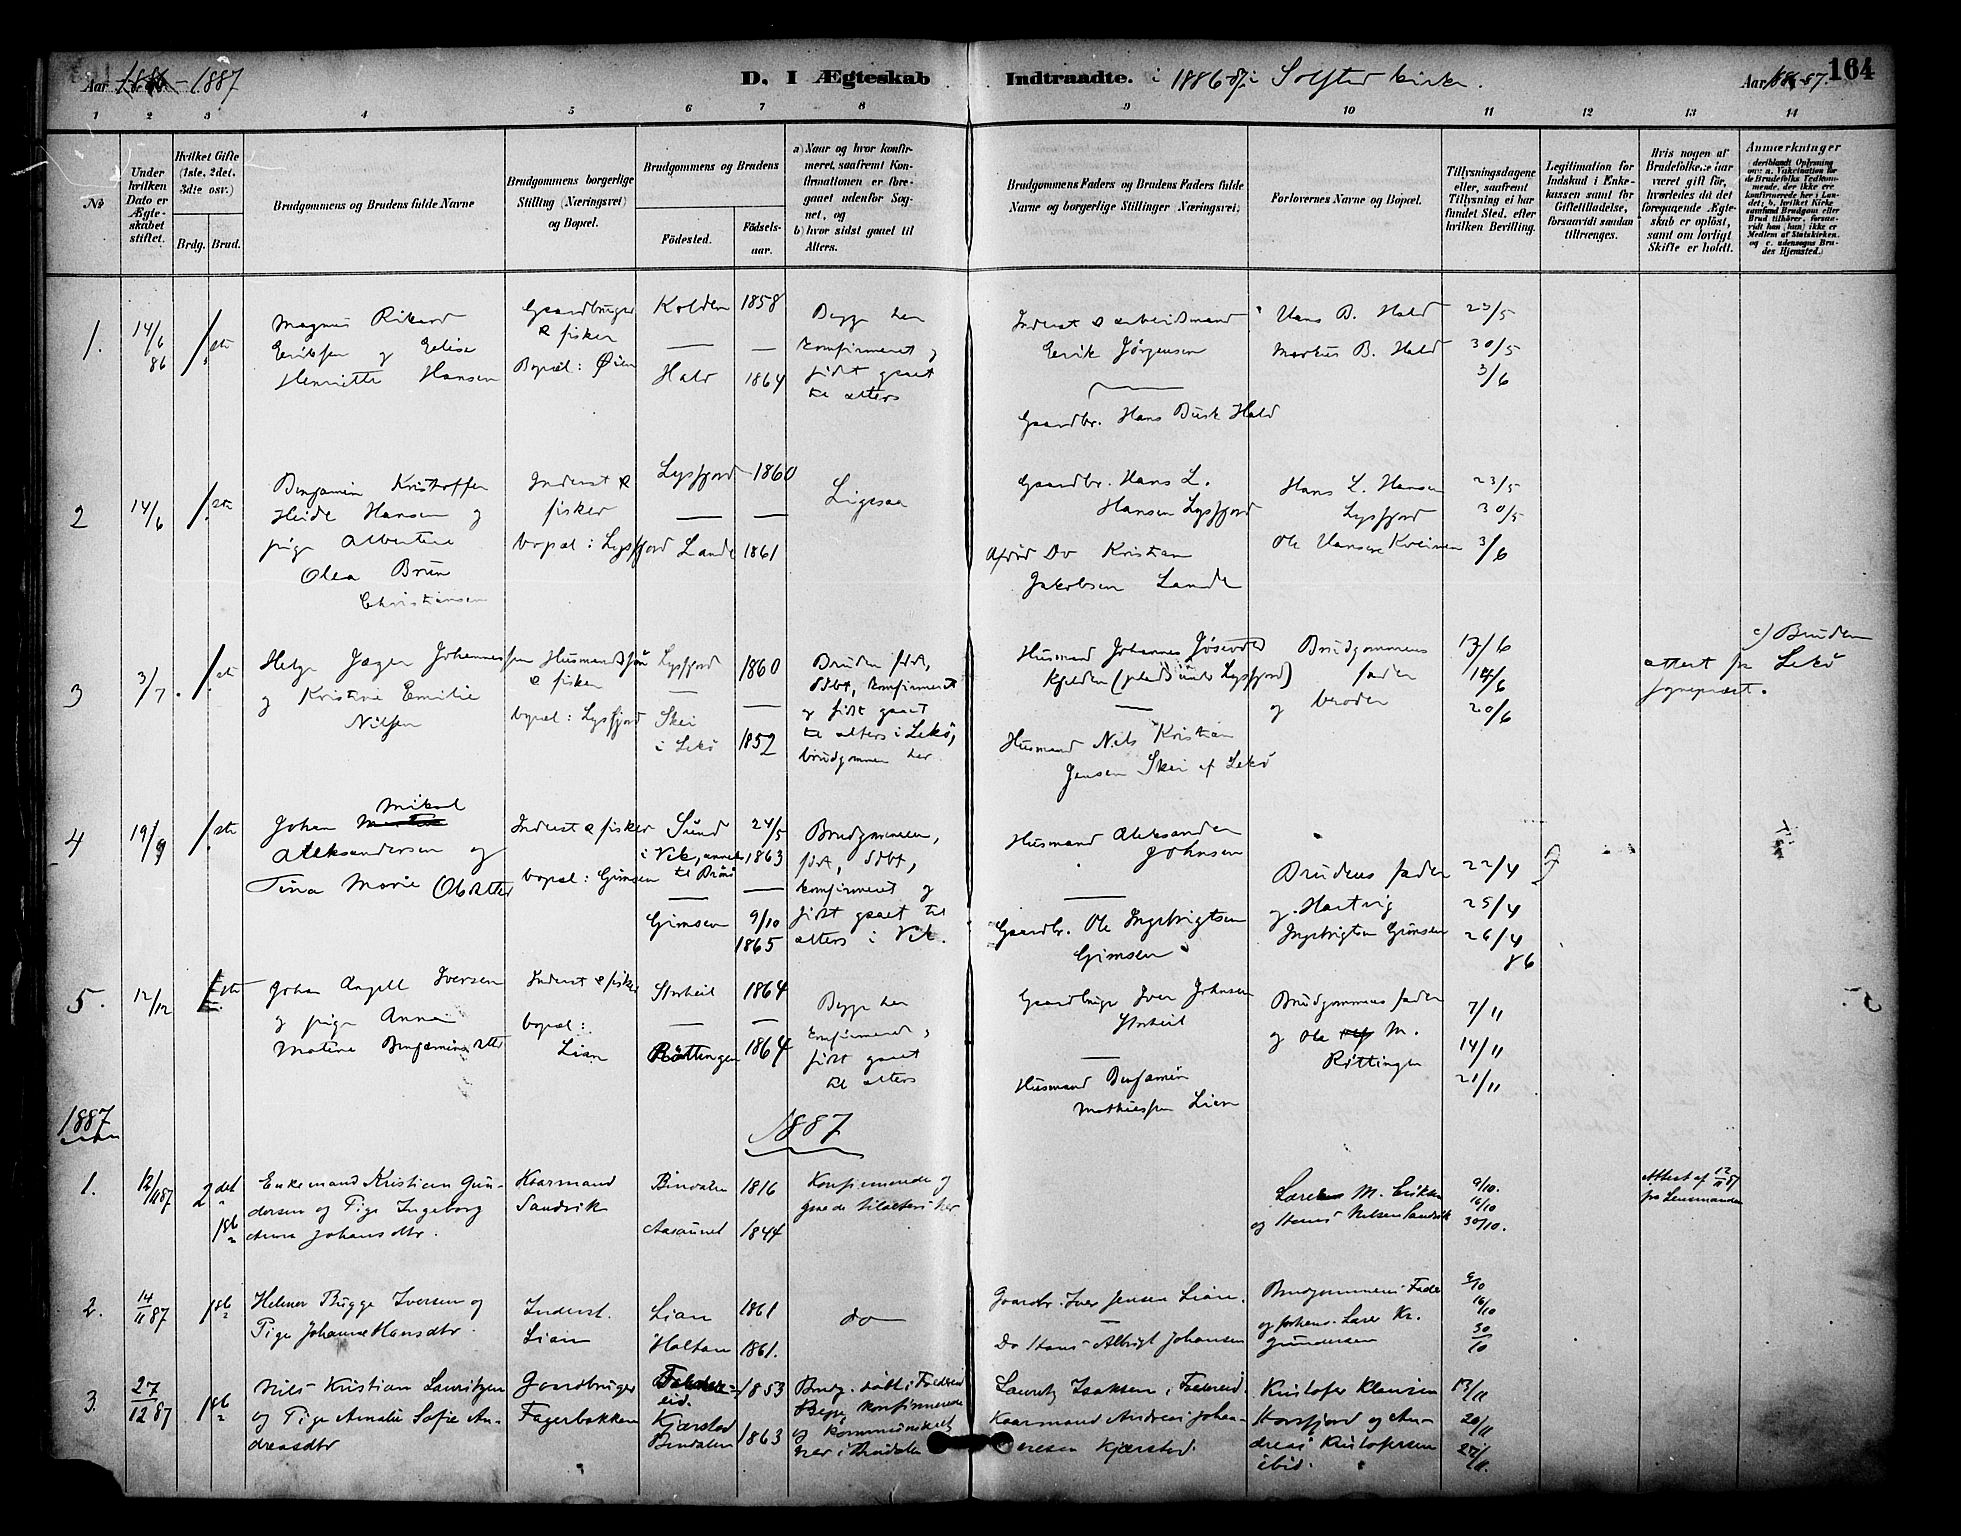 Aar 1886-1887
D. I Ægteskab Indtraadte. i 1886-87 i Solstad kirke.
Aar 1886-87.
164
1 2 3 4 5 6 7 8 9 10 11 12 13 14
No
Under hvilken Dato er Ægteskabet stiftet.
Hvilket Gifte (1ste, 2det, 3dte osv.)
Brdg. Brud.
Brudgommens og Brudens fulde Navne
Brudgommens borgerlige Stilling (Næringsvei) og Bopæl.
Brudgommens og Brudens
Födested.
Födselsaar.
a) Naar og hvor konfirmeret, saafremt Konfirmationen er foregaaet udenfor Sognet, og
b) hvor sidst gaaet til Alters.
Brudgommens Faders og Brudens Faders fulde Navne og borgerlige Stillinger (Næringsvei)
Forlovernes Navne og Bopæl.
Tillysningsdagene eller, saafremt Tillysning ei har fundet Sted, efter hvilken Bevilling.
Legitimation for Indskud i Enkekassen samt for Giftetilladelse, forsaavidt saadan tiltrænges.
Hvis nogen af Brudefolkene har været gift för, hvorledes da det foregaaende Ægteskab er oplöst, samt om lovligt Skifte er holdt.
Anmærkninger
(deriblandt Oplysning om: a. Vakcination for de Brudefolks Vedkommende, der ikke ere konfirmerede her i Landet; b. hvilket Kirkesamfund Brudgom eller Brud tilhörer, forsaavidt han (hun) ikke er Medlem af Statskirken, og c. udensogns Brudes Hjemsted.)
1. 14/6 86 1 ste
Magnus Rikard
Eriksen og Elise
Henriette Hansen
Gaardbruger
& fisker
Bopæl: Øien
Kolden 1858
Hald 1864
Begge her
konfirmeret og
sidst gaaet
til alters
Inderst & arbeidsmand
Erik Jørgensen
Gaardbr. Hans Busk Hald
Hans B. Hald
Markus B. Hald
23/5
30/5
3/6
2 14/6 1 ste
Benjamin Kristoffer
Heide Hansen og
pige Albertine
Olea Brun
Christiansen
Inderst &
fisker
bopæl: Lysfjord
Lysfjord 1860
Lande 1861
Ligesaa
Gaardbr. Hans L.
Hansen Lysfjord
Afdød Do Kristian
Jakobsen Lande
Hans L. Hansen
Lysfjord
Ole Hansen
23/5
30/5
3/6
3 3/7 1 ste
Helge Jæger Johannessen
og Kristine Emilie
Nilsen
Husmandssøn
& fisker
bopæl: Lysfjord
Lysfjord 1860
Skei
i Lekø 1852
Bruden født,
døbt, konfirmeret
og sidst gaaet
til alters i Lekø,
brudgommen her
Husmand Johannes
Kjelden
Husmand Nils Kristian
Jensen Skei af Lekø
Brudgommens
fader
og broder
13/6
14/6
20/6
c) Bruden
attest fra Lekø
sogneprest.
4 19/9 1 ste
Johan Mikal
Aleksandersen og
Tina Marie Olsdatter
Inderst & fisker
bopæl: Gimsen
Sund
i Vik, annex
til Brønø
24/5
1863
Gimsen 9/10
1865
Brudgommen,
født, døbt,
konfirmeret og
sidst gaaet til
alters i Vik.
Husmand Aleksander
Johnsen
Gaardbr. Ole Ingebrigtsen
Gimsen
Brudens fader
og Hartvig
Ingebrigtsen Gimsen
22/4
25/4
26/4
86
5. 12/12 1 ste
Johan Angell Iversen
og pige Anna
Martine Benjaminsdtter
Inderst & fisker
bopæl:
Lian
Storheil 1864
Røttingen 1864
Begge her
konfirmeret og
sidst gaaet
til alters
Gaardbruger Iver Johnsen
Storheil
Husmand Benjamin
Mathiessen Lian
Brudgommens fader
og Ole M.
Røttingen
7/11
14/11
21/11
1887
1887
1. 12/11 87 2 det 1ste
Enkemand Kristian Gundersen og Pige Ingeborg
Anna Johansdtr.
Kaarmand
Sandvik
Bindalen 1816
Aasaunet 1844
Konfirmerede og
gaaede tilalters her
M. Eriksen
og Hans Nilsen Sandvik
9/10.
16/10
30/10.
Attest af 12/11 87
fra Lensmanden
2. 14/11 87 1ste
Helmer Bugge Iversen og
Pige Johanne Hansdtr.
Inderst.
Lian
Lian 1861
Holtan 1861.
do
Gaardbr. Iver Jensen Lian.
Do Hans Albrigt Johansen
Brudgommens Fader
og Kr.
Gundersen
9/10
16/10
30/10
3. 27/12 87 1ste
Nils Kristian Lauritzen
og Pige Amalie Sofie Andreasdtr
Gaardbruger
Fagerbakken
Foldereid. 1853
Kjærstad
Bindalen 1863
Brudg. døbt i Foldereid
Begge konfirmerede
og kommuniceret
her i Bindalen
Lauritz Isaksen, Foldereid.
Kaarmand Andreas Johannesen Kjærstad.
Kristofer Klausen
Horsfjord og Andreas Kristofersen
ibid.
13/11
20/11
27/11.